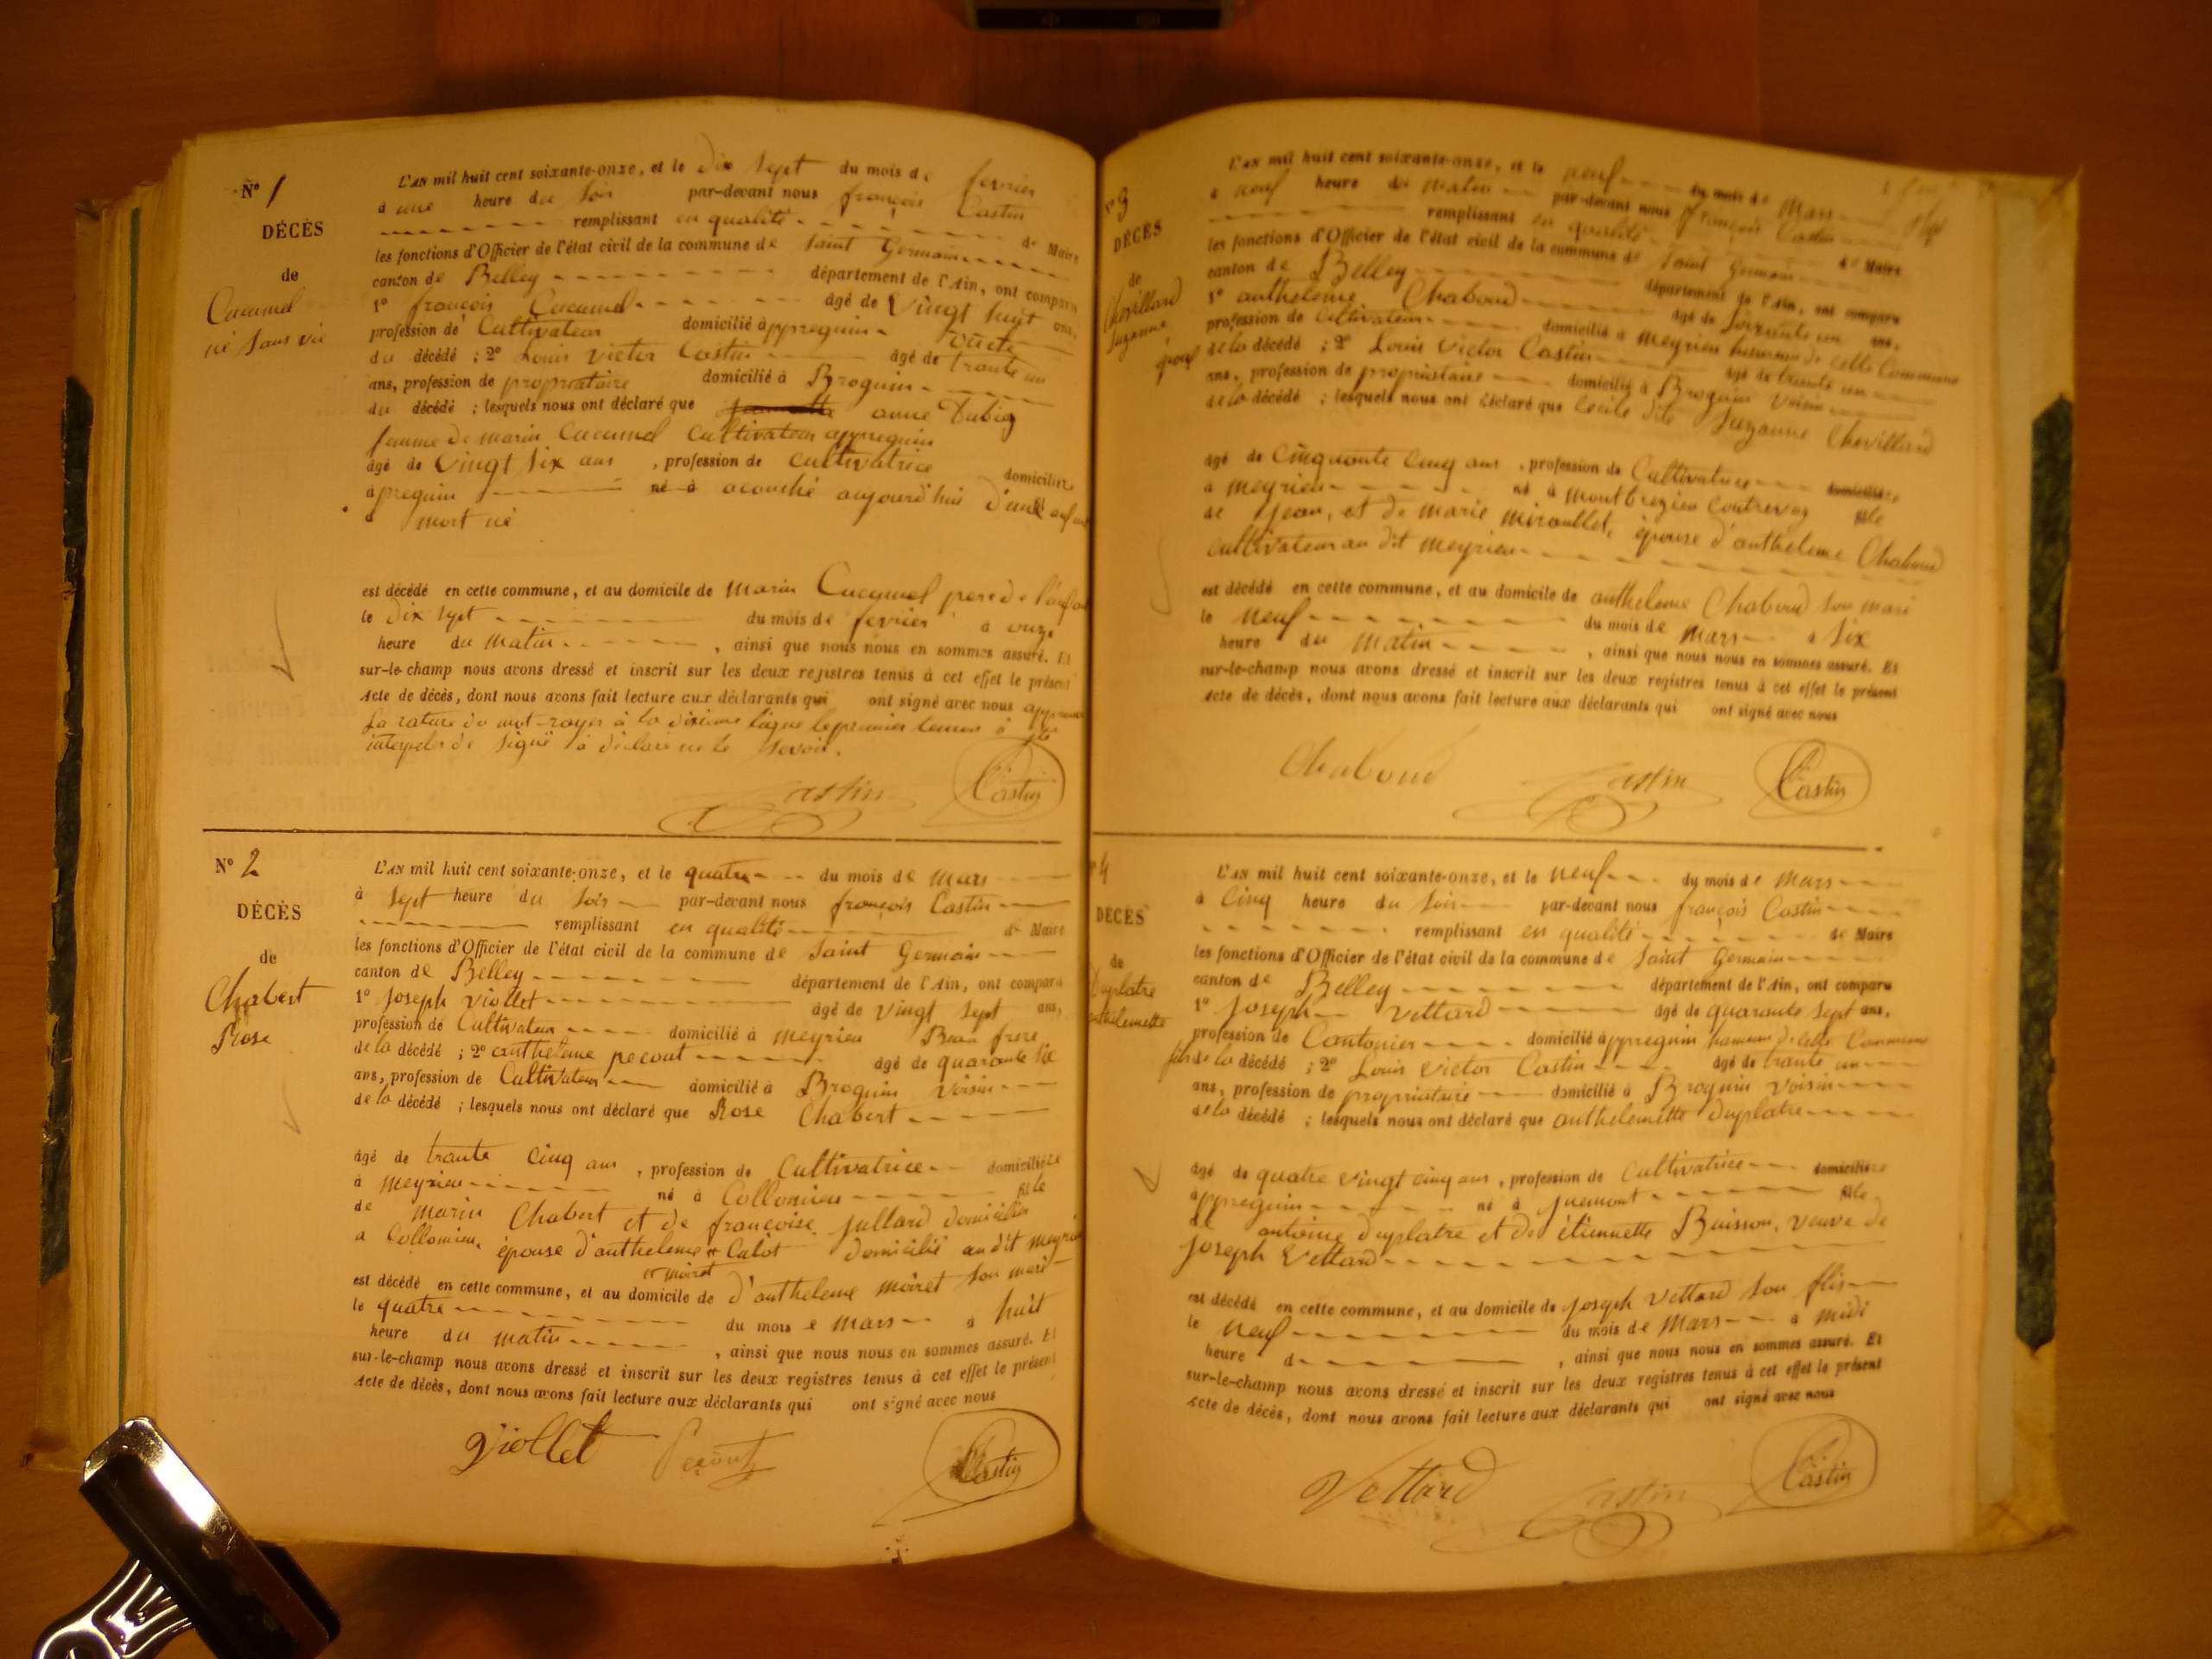 N° 1
DÉCÈS
de
Cacumel
né sans vie
L'AN mil huit cent soixante-onze, et le dix sept du mois de fevrier
à une heure du soir par-devant nous françois Castin
remplissant en qualité de Maire
les fonctions d'Officier de l'état civil de la commune de Saint Germain
canton de Belley département de l'Ain, ont comparu
1° françois Cacumel âgé de vingt huit ans,
profession de Cultivateur domicilié à ppreguin
du décédé ; 2° Louis victor Castin âgé de trante un
ans, profession de propriataire domicilié à Broguin
du décédé ; lesquels nous ont déclaré que anne Dubig
famme de marin Cacumel Cultivateur appreguin
âgé de vingt six ans , profession de cultivatrice domiciliée
à preguin né à acouché aujourd'hui d'un enfant
mort né
est décédé en cette commune, et au domicile de marin Cacumel pere de l'enfant
le dix sept du mois de fevrier à onze
heure du matin , ainsi que nous nous en sommes assuré. Et
sur-le-champ nous avons dressé et inscrit sur les deux registres tenus à cet effet le présent
acte de décès, dont nous avons fait lecture aux déclarants qui ont signé avec nous
la rature du mot rayer à la dixieme ligne le premier temoin à
interpeler de signé à déclaré ne le savoir.
Castin Castin
N° 2
DÉCÈS
de
Chabert
Rose
L'AN mil huit cent soixante-onze, et le quatre du mois de mars
à sept heure du soir par-devant nous françois Castin
remplissant en qualité de Maire
les fonctions d'Officier de l'état civil de la commune de Saint Germain
canton de Belley département de l'Ain, ont comparu
1° Joseph viollet âgé de vingt sept ans,
profession de Cultivateur domicilié à meyrieu Beau frere
de la décédé ; 2° anthelme pecout âgé de quarante six
ans, profession de Cultivateur domicilié à Broguin voisin
de la décédé ; lesquels nous ont déclaré que Rose Chabert
âgé de trante cinq ans , profession de Cultivatrice domiciliée
à meyrieu né à Collomieu fille
de marin Chabert et de françoise jullard domicilié
a Collomieu, épouse d'antheleme Calot domicilié au dit meyrieu
moiret
est décédé en cette commune, et au domicile de d'antheleme moiret son mari
le quatre du mois de mars à huit
heure du matin , ainsi que nous nous en sommes assuré. Et
sur-le-champ nous avons dressé et inscrit sur les deux registres tenus à cet effet le présent
acte de décès, dont nous avons fait lecture aux déclarants qui ont signé avec nous
Viollet Pecout Castin
N° 3
DÉCÈS
de
Chevillard
Suzanne
L'AN mil huit cent soixante-onze, et le neuf du mois de mars
à neuf heure du matin par-devant nous françois Castin
remplissant en qualité de Maire
les fonctions d'Officier de l'état civil de la commune de Saint Germain
canton de Belley département de l'Ain, ont comparu
1° antheleme Chaboud âgé de soixante un ans,
profession de Cultivateur domicilié à meyrieu hameau de cette Commune
époux de la décédé ; 2° Louis victor Castin âgé de trante un
ans, profession de propriataire domicilié à Broguin voisin
de la décédé ; lesquels nous ont déclaré que Cecile dite Suzanne Chevillard
âgé de cinquante cinq ans , profession de Cultivatrice domiciliée
à meyrieu né à montbrezieu Contrevoz fille
de jean, et de marie miraullet, épouse d'antheleme Chaboud
cultivateur au dit meyrieu
est décédé en cette commune, et au domicile de antheleme Chaboud son mari
le neuf du mois de mars à six
heure du matin , ainsi que nous nous en sommes assuré. Et
sur-le-champ nous avons dressé et inscrit sur les deux registres tenus à cet effet le présent
acte de décès, dont nous avons fait lecture aux déclarants qui ont signé avec nous
Chaboud Castin Castin
4
DÉCÈS
de
Duplatre
anthelemette
L'AN mil huit cent soixante-onze, et le neuf du mois de mars
à cinq heure du soir par-devant nous françois Castin
remplissant en qualité de Maire
les fonctions d'Officier de l'état civil de la commune de Saint Germain
canton de Belley département de l'Ain, ont comparu
1° Joseph Vettard âgé de quarante sept ans,
profession de Cantonier domicilié à ppreguin hameau de cette Commune
fils de la décédé ; 2° Louis victor Castin âgé de trante un
ans, profession de propriataire domicilié à Broguin voisin
de la décédé ; lesquels nous ont déclaré que anthelemette Duplatre
âgé de quatre vingt cinq ans , profession de Cultivatrice domiciliée
à ppreguin né à fille
de antoine Duplatre et de étiennette Buisson, veuve de
Joseph Vettard
est décédé en cette commune, et au domicile de joseph Vettard son flis
le neuf du mois de mars à midi
heure d , ainsi que nous nous en sommes assuré. Et
sur-le-champ nous avons dressé et inscrit sur les deux registres tenus à cet effet le présent
acte de décès, dont nous avons fait lecture aux déclarants qui ont signé avec nous
Vettard Castin Castin